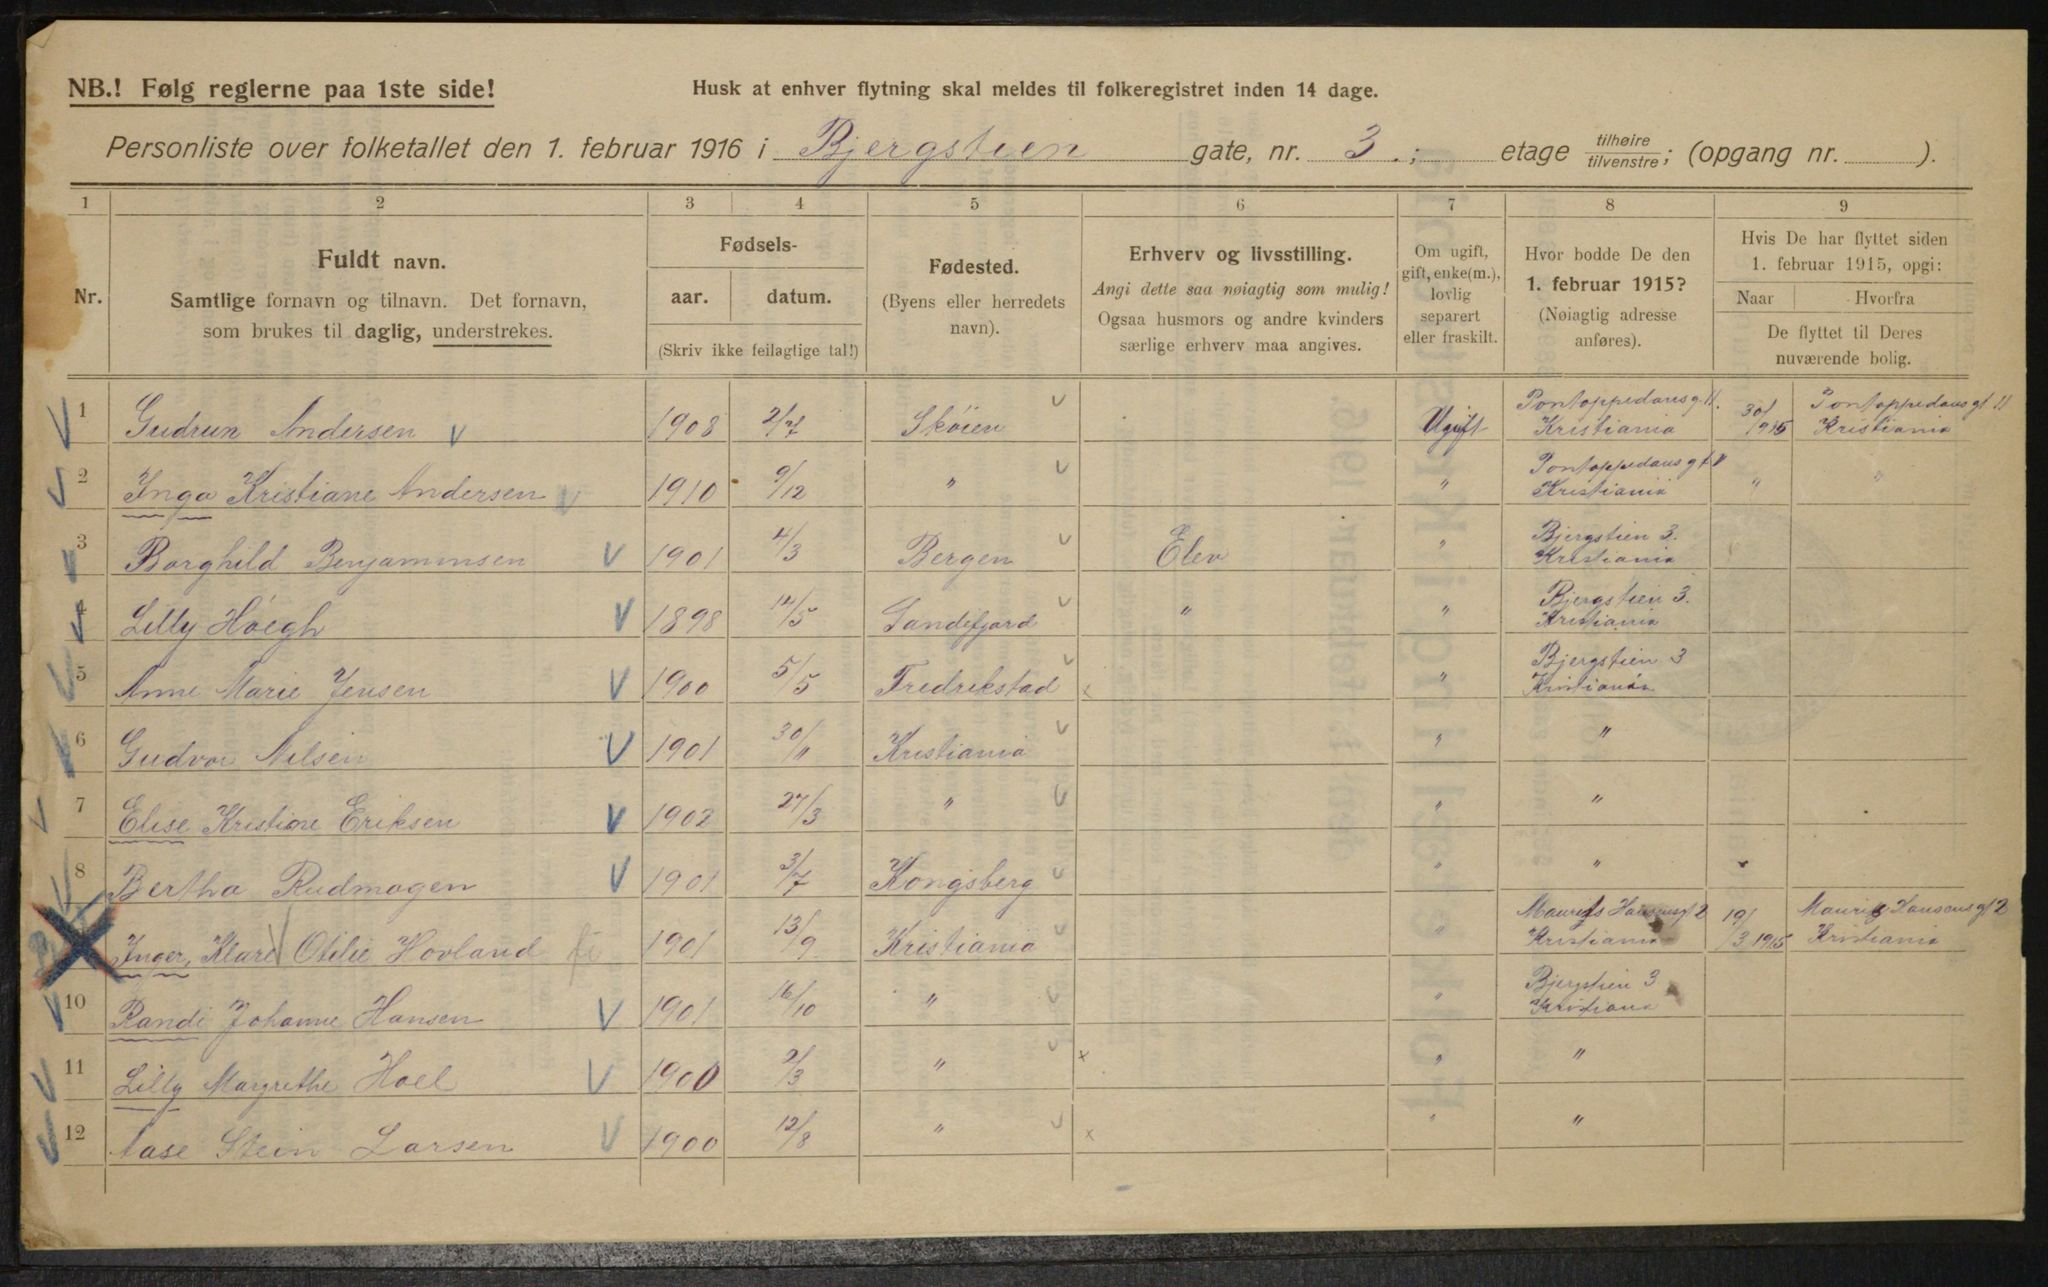 NB.! Følg reglerne paa 1ste side!
Husk at enhver flytning skal meldes til folkeregistret inden 14 dage.
Personliste over folketallet den 1. februar 1916 i Bjergstien gate, nr. 3.; etage tilhøire/tilvenstre; (opgang nr. ).
1 2 3 4 5 6 7 8 9
Nr.
Fuldt navn.
Samtlige fornavn og tilnavn. Det fornavn,
som brukes til daglig, understrekes.
Fødsels-
aar. datum.
(Skriv ikke feilagtige tal!)
Fødested.
(Byens eller herredets
navn).
Erhverv og livsstilling.
Angi dette saa nøiagtig som mulig!
Ogsaa husmors og andre kvinders
særlige erhverv maa angives.
Om ugift,
gift, enke(m.),
lovlig
separert
eller fraskilt.
Hvor bodde De den
1. februar 1915?
(Nøiagtig adresse
anføres).
Hvis De har flyttet siden
1. februar 1915, opgi:
Naar Hvorfra
De flyttet til Deres
nuværende bolig.
1 Gudrun Andersen 1908 2/7 Sköien Ugift Pontoppedansg. 11. Kristiania 30/ 1915 Pontoppedansgt 11 Kristiania
2 Inga Kristiane Andersen 1910 9/12 " " Pontoppedansgt 11 Kristiania " "
3 Borghild Benjaminsen 1901 4/3 Bergen Elev " Bjergstien 3. Kristiania
4 Lilly Höegh 1898 12/5 Sandefjord " " Bjergstien 3. Kristiania
5 Anne Marie Jensen 1900 5/5 Fredrikstad x " Bjergstien 3 Kristiania
6 Gudvor Nilsen 1901 30/11 Kristiania " "
7 Elise Kristine Eriksen 1902 27/3 " " "
8 Bertha Rudmogen 1901 3/7 Kongsberg " "
Inger, Klara Otilie Hovland 1901 13/9 Kristiania " Maurits Hansensgt 2 Kristiania 19/3 1915 Maurits Hansensgt 2 Kristiania
10 Randi Johanne Hansen 1901 16/10 " " Bjergstien 3 Kristiania
11 Lilly Margrethe Hoel 1900 2/3 " x " "
12 Aase Stein Larsen 1900 12/8 " x " "